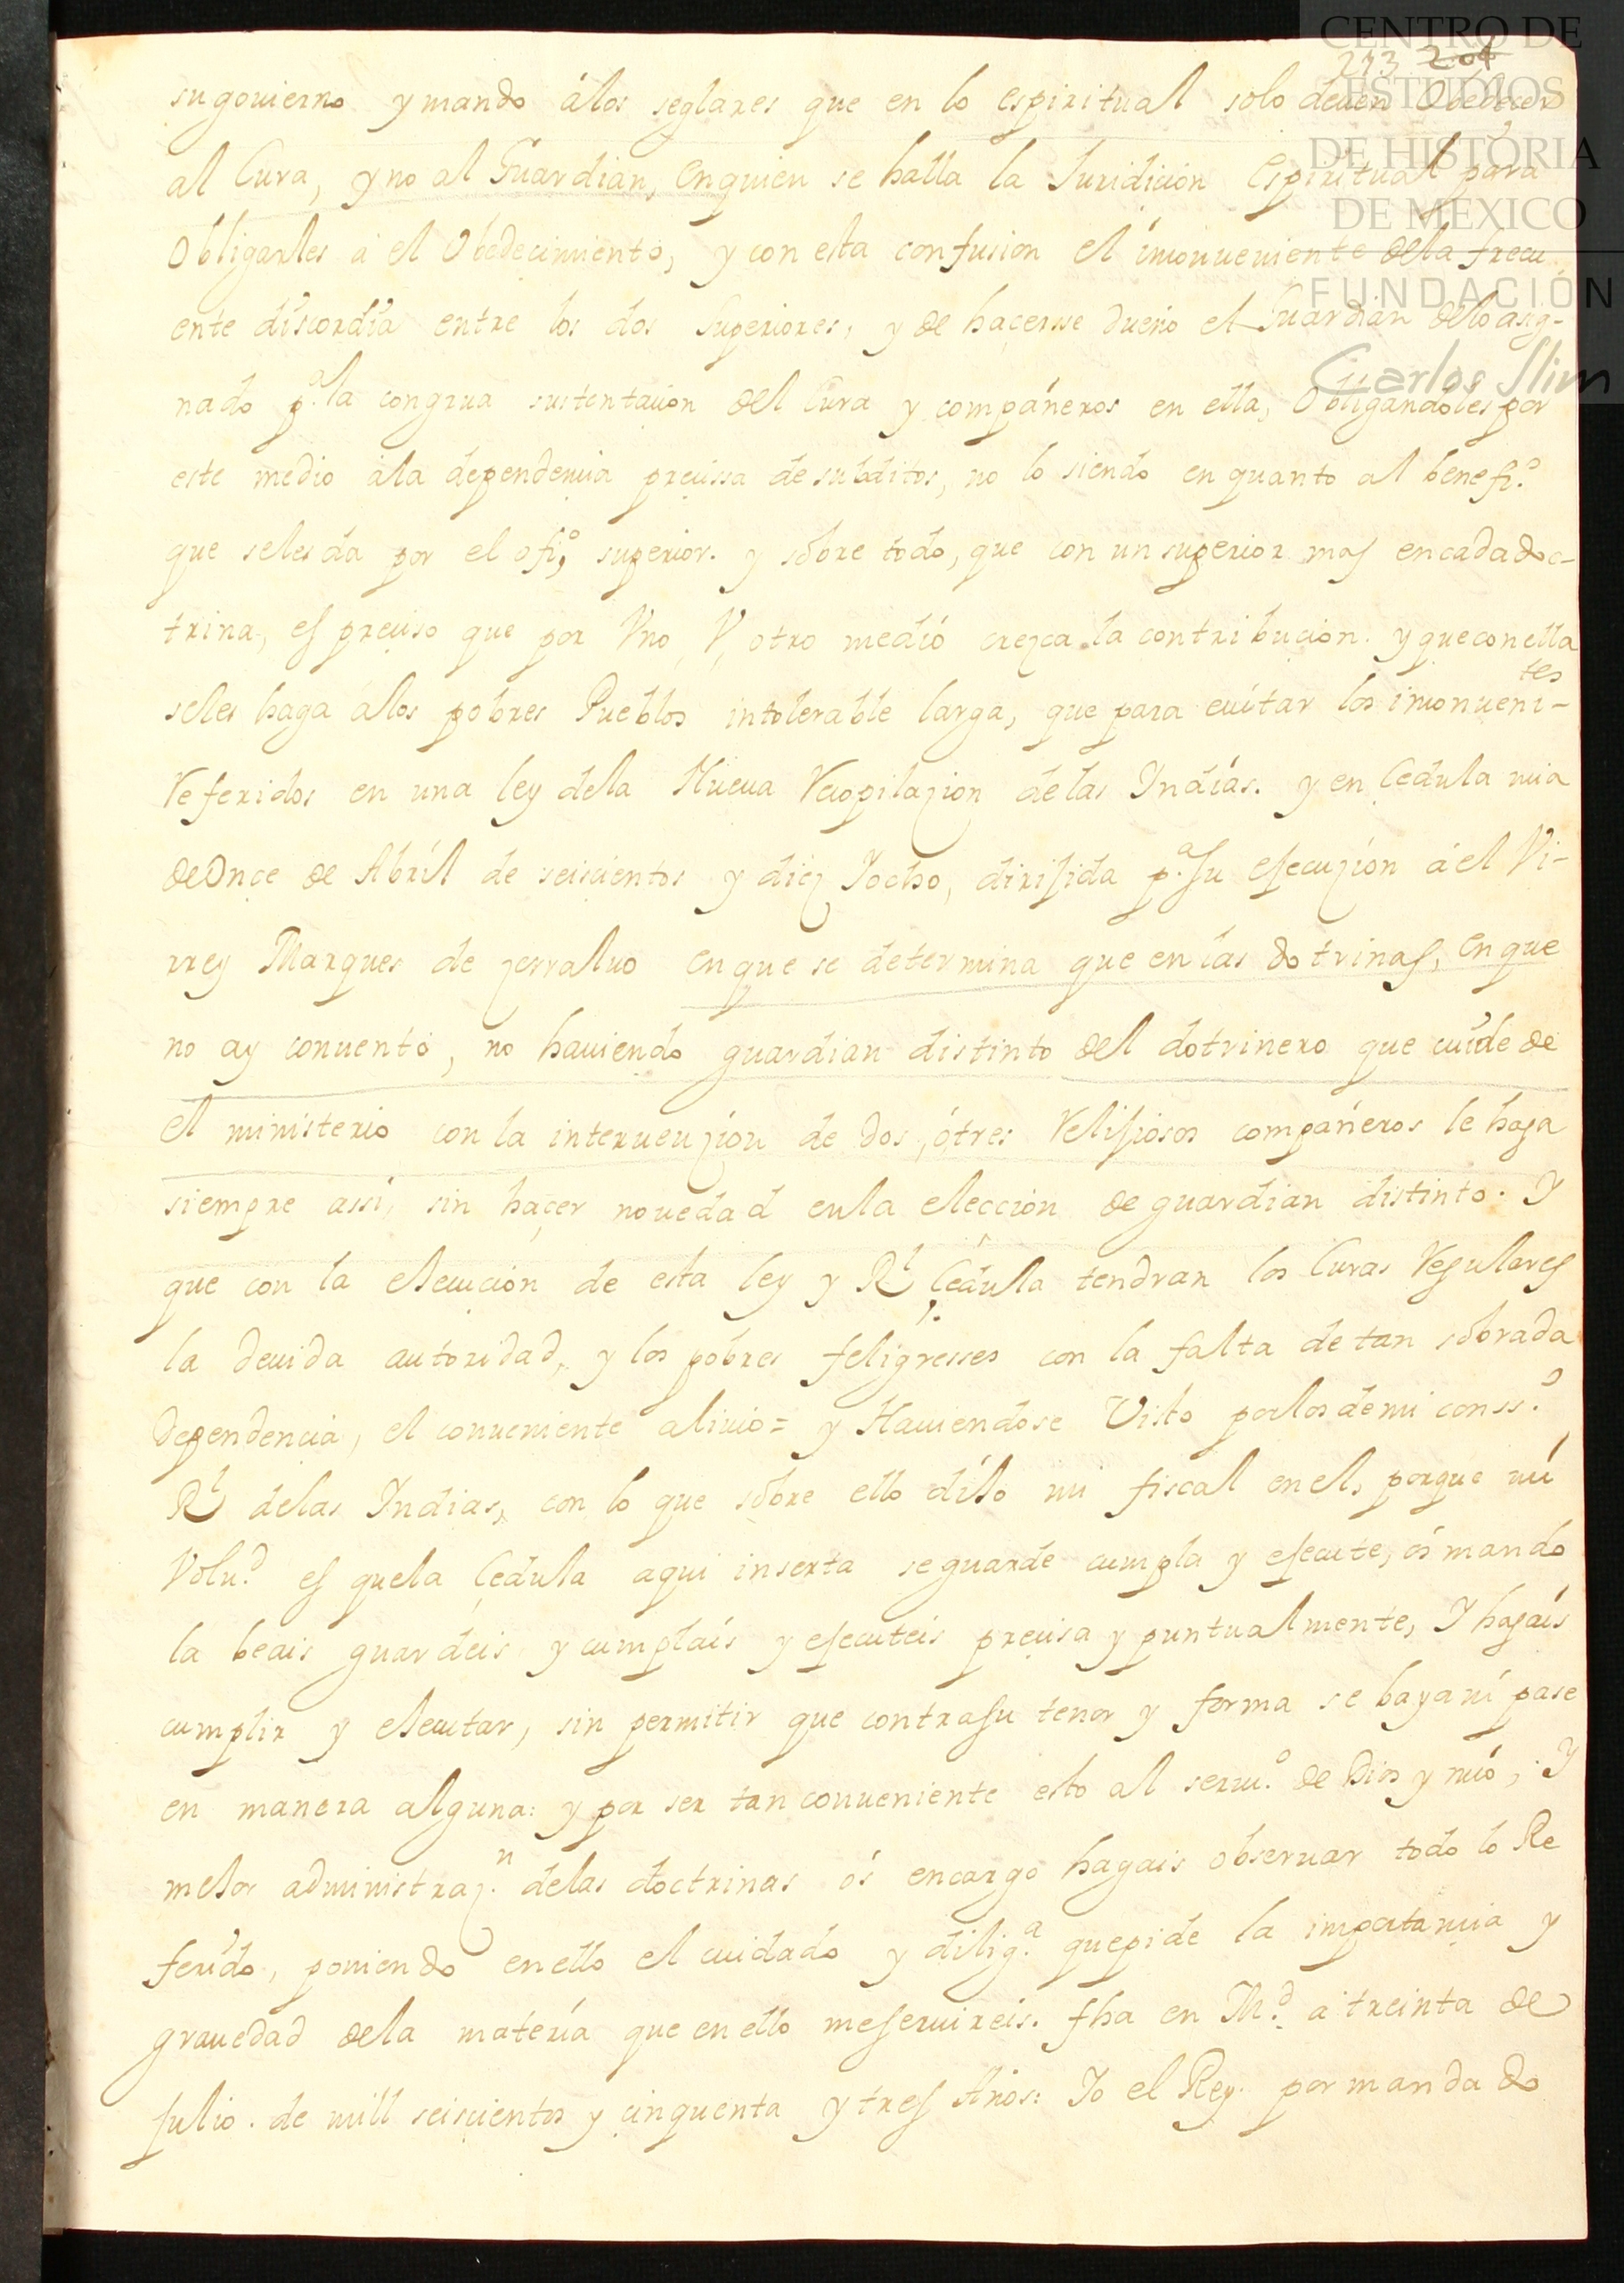 CENTRO DE
ESTUDIOS
DE HISTORIA
DE MEXICO
FUNDACIÓN
Carlos Slim
213 204
su govierno y mando á los seglares que en lo espiritual solo deven Obedecer
al Cura, y no al Guardian, en quien se halla la Juridicion Espiritual para
Obligarles á el Obedecimiento, y con esta confusion el inconveniente de la frecu
ente discordia entre los dos Superiores, y de hacersse dueño el Guardian de lo asig-
nado p.ᵃ la congrua sustentacion del Cura y compañeros en ella, Obligandoles por
este medio á la dependencia precissa de subditos, no lo siendo en quanto al benefi.º
que se les da por el ofi.º superior. y sobre todo, que con un superior mas en cada doc-
trina, es preciso que por Vno, V, otro medio crezca la contribucion. y que con ella
se les haga a los pobres Pueblos intolerable carga, que para evitar los inconveni-tes
Referidos en una ley de la Nueva Recopilazion de las Indias. y en Cedula mia
de Once de Abril de seiscientos y diez Jocho, dirijida p.ᵃ su ejecuzion á el Vi-
rrey Marques de zerralvo en que se determina que en las dotrinas, en que
no ay convento, no haviendo guardian distinto del dotrinero que cuide de
el ministerio con la intervenzion de dos, ó tres Relijiosos compañeros le haja
siempre assi, sin hacer novedad en la eleccion de guardian distinto. Y
que con la ejecucion de esta ley y Rˡ Cedula tendran los Curas Regulares
la devida autoridad, y los pobres feligresses con la falta de tan sobrada
dependencia, el conveniente alivio = y Haviendose Visto por los de mi conss.º
Rˡ de las Indias, con lo que sobre ello dijo mi fiscal en el, porque mi
Volu.ᵈ es que la Cedula aqui inserta se guarde cumpla y ejecute, ós mando
la beais guardeis y cumplais y ejecuteis precisa y puntualmente, Y hagais
cumplir y ejecutar, sin permitir que contra su tenor y forma se baya ni pase
en manera alguna: y por ser tan conveniente esto al servi.º de Dios y mio, Y
mejor administraz.ⁿ de las doctrinas ós encargo hagais observar todo lo Re
ferido, poniendo en ello el cuidado y dilig.ᵃ que pide la importancia y
gravedad de la materia que en ello me serviréis. fha en M.ᵈ a treinta de
Julio. de mill seiscientos y cinquenta y tres Años: Yo el Rey. por mandado